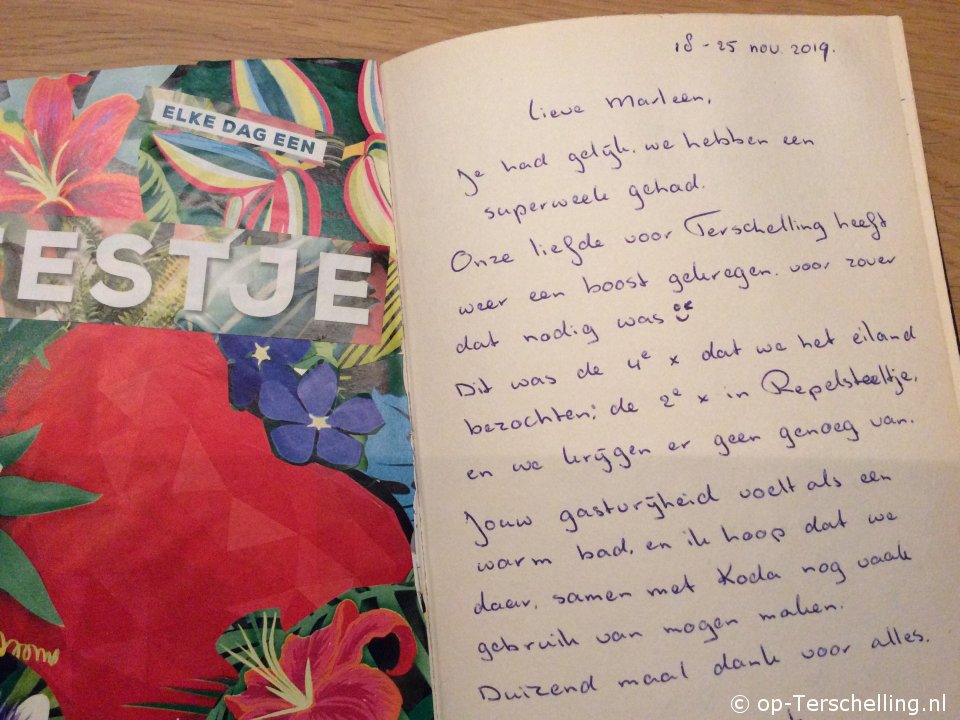 ELKE DAG EEN
ESTJE
18 - 25 nov. 2019.
Lieve Marleen,
Je had gelijk. we hebben een
superweek gehad.
Onze liefde voor Terschelling heeft
weer een boost gekregen. voor zover
dat nodig was
Dit was de 4e x dat we het eiland
bezochten; de 2e x in Repelsteeltje,
en we krijgen er geen genoeg van.
Jouw gastvrijheid voelt als een
warm bad, en ik hoop dat we
daar, samen met Koda nog vaak
gebruik van mogen maken.
Duizend maal dank voor alles.
© op-Terschelling.nl